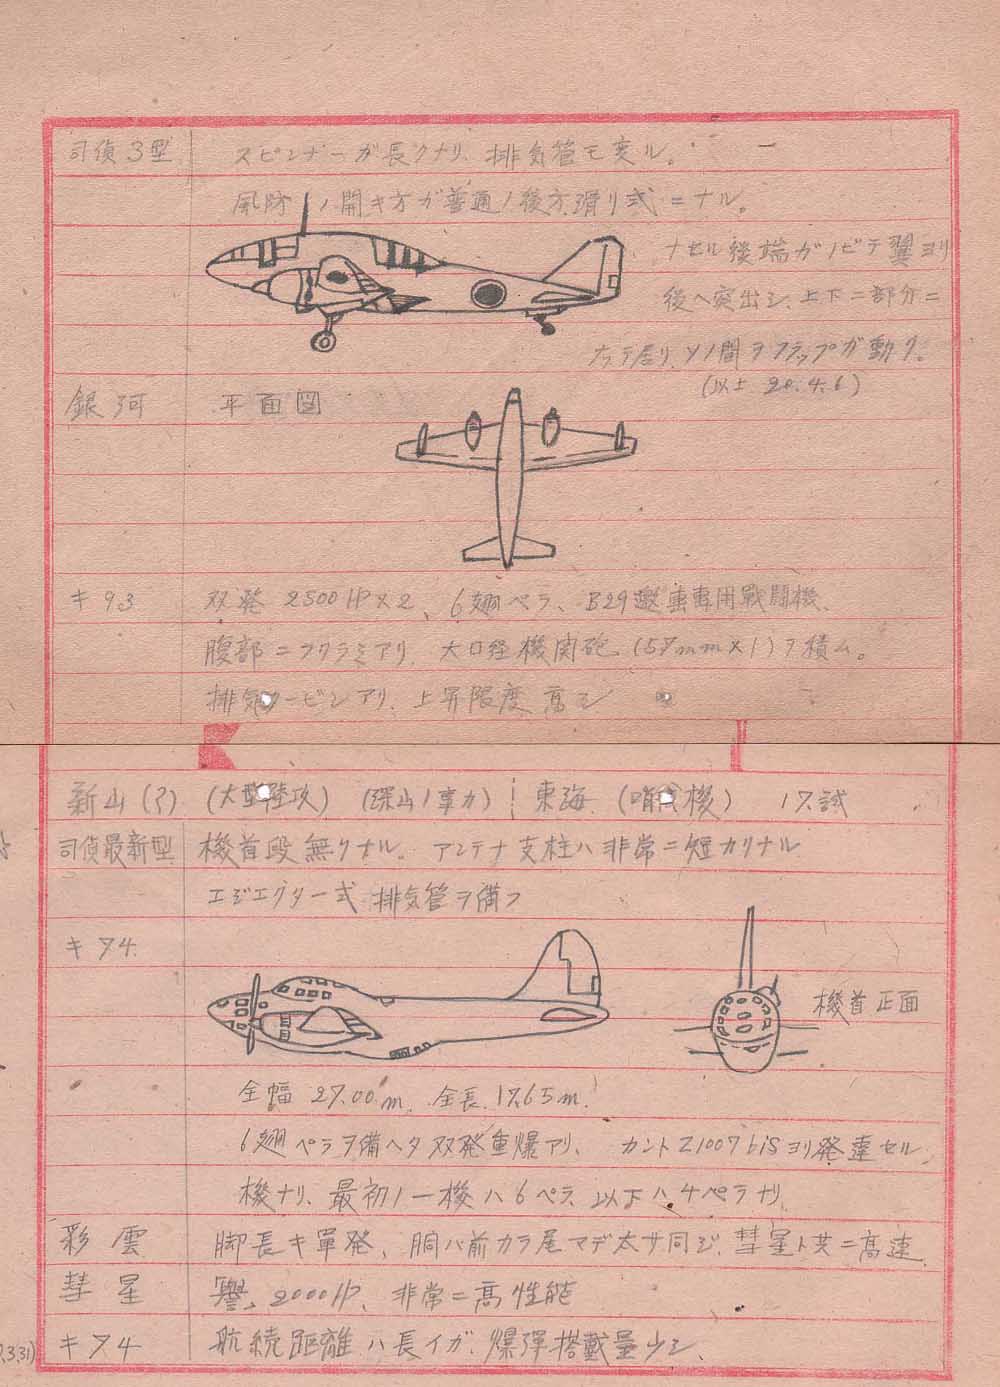 司偵3型 スピンナーガ長クナリ、排気管モ変ル。
風防ノ開キ方ガ普通ノ後方滑リ式ニナル。
ナセル後端ガノビテ翼ヨリ
後ヘ突出シ、上下ニ部分ニ
ナッテ居リ、ソノ間ヲフラップガ動ク。
(以上 20.4.6)
銀河 平面図
キ93 双発 2500HP×2、6翅ペラ、B29邀撃専用戰闘機、
腹部ニフクラミアリ、大口経機関砲、(57mm×1)ヲ積ム。
排気タービンアリ、上昇限度高シ
新山(?) (大型陸攻) (深山ノ事カ) 東海 (哨戒機) 17試
司偵最新型 機首段無クナル。アンテナ支柱ハ非常ニ短カクナル
エジエクター式排気管ヲ備フ
キ74
機首正面
全幅 27.00m. 全長 17.65m.
6翅ペラヲ備ヘタ双発重爆アリ、カントZ1007bisヨリ発達セル
機ナリ、最初ノ一機ハ6ペラ、以下ハ4ペラナリ
彩雲 脚長キ單発、胴ハ前カラ尾マデ太サ同ジ、彗星ト共ニ高速
彗星 譽、2000HP、非常ニ高性能
キ74 航続距離ハ長イガ、爆弾搭載量少シ、
3.31)